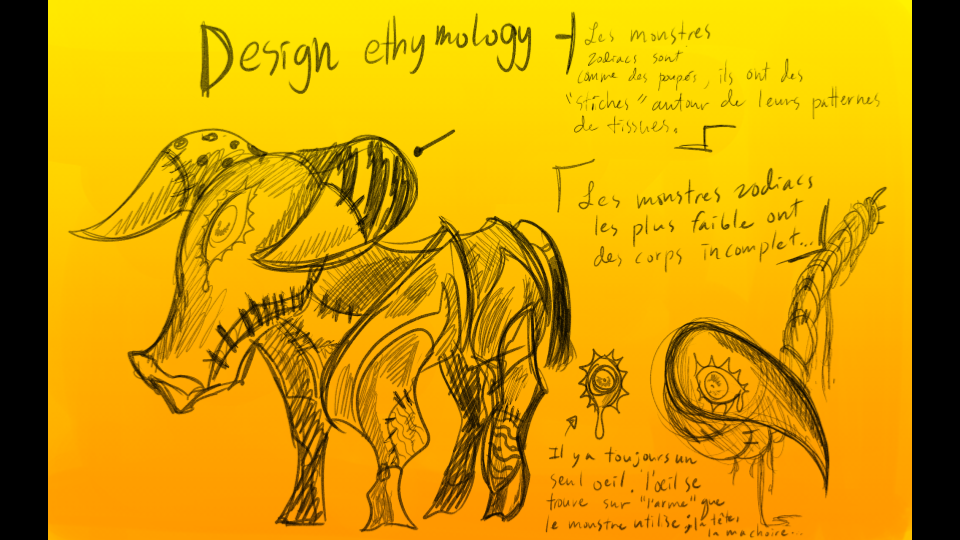 Design ethymology
Les monstres
zodiacs sont
comme des poupés, ils ont des
"stiches" autour de leurs patternes
de tissues.
Les monstres zodiacs
les plus faible ont
des corps incomplet...
Il y a toujours un
seul oeil. l'œil se
trouve sur "l'arme" que
le monstre utilise; la tête,
la machoire...